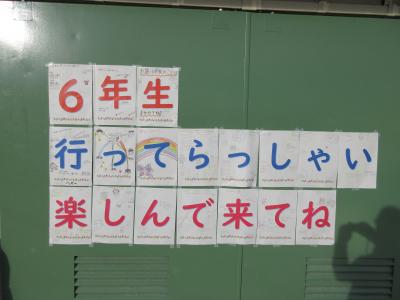 6年生
行ってらっしゃい
楽しんで来てね